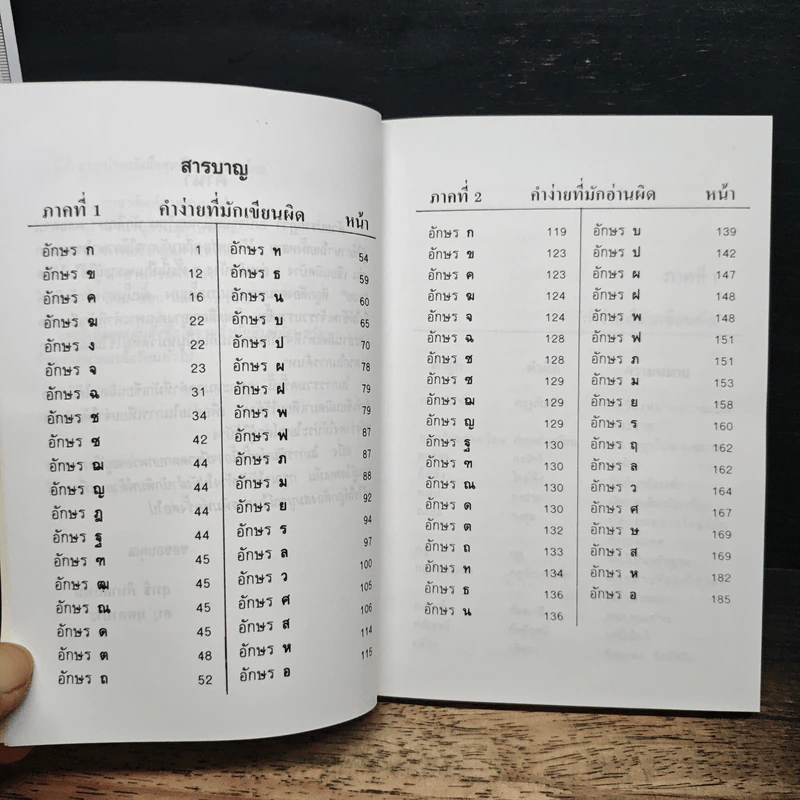 สารบาญ
ภาคที่ 1 คำง่ายที่มักเขียนผิด หน้า
อักษร ก 1
อักษร ข 12
อักษร ค 16
อักษร ฆ 22
อักษร ง 22
อักษร จ 23
อักษร ฉ 31
อักษร ช 34
อักษร ซ 42
อักษร ฌ 44
อักษร ญ 44
อักษร ฎ 44
อักษร ฐ 44
อักษร ฑ 45
อักษร ฒ 45
อักษร ณ 45
อักษร ด 45
อักษร ต 48
อักษร ถ 52
อักษร ท 54
อักษร ธ 59
อักษร น 60
อักษร บ 65
อักษร ป 70
อักษร ผ 78
อักษร ฝ 79
อักษร พ 79
อักษร ฟ 87
อักษร ภ 87
อักษร ม 88
อักษร ย 92
อักษร ร 94
อักษร ล 97
อักษร ว 100
อักษร ศ 105
อักษร ส 106
อักษร ห 114
อักษร อ 115
ภาคที่ 2 คำง่ายที่มักอ่านผิด หน้า
อักษร ก 119
อักษร ข 123
อักษร ค 123
อักษร ฆ 124
อักษร จ 124
อักษร ฉ 128
อักษร ช 128
อักษร ซ 129
อักษร ฌ 129
อักษร ญ 129
อักษร ฐ 130
อักษร ฑ 130
อักษร ณ 130
อักษร ด 130
อักษร ต 132
อักษร ถ 133
อักษร ท 134
อักษร ธ 136
อักษร น 136
อักษร บ 139
อักษร ป 142
อักษร ผ 147
อักษร ฝ 148
อักษร พ 148
อักษร ฟ 151
อักษร ภ 151
อักษร ม 153
อักษร ย 158
อักษร ร 160
อักษร ฤ 162
อักษร ล 162
อักษร ว 164
อักษร ศ 167
อักษร ษ 169
อักษร ส 169
อักษร ห 182
อักษร อ 185